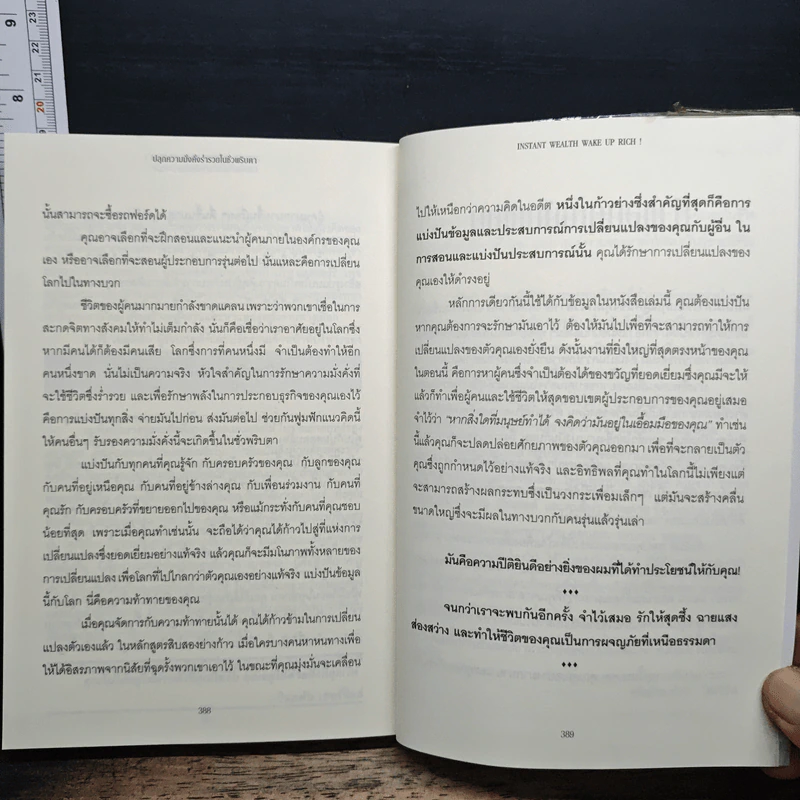 9
8
23
22
21
20
19
18
ปลุกความมั่งคั่งร่ำรวยในชั่วพริบตา
นั้นสามารถจะซื้อรถฟอร์ดได้
คุณอาจเลือกที่จะฝึกสอนและแนะนำผู้คนภายในองค์กรของคุณ
เอง หรืออาจเลือกที่จะสอนผู้ประกอบการรุ่นต่อไป นั่นแหละคือการเปลี่ยน
โลกไปในทางบวก
ชีวิตของผู้คนมากมายกำลังขาดแคลน เพราะว่าพวกเขาเชื่อในการ
สะกดจิตทางสังคมให้ทำไม่เต็มกำลัง นั่นก็คือเชื่อว่าเราอาศัยอยู่ในโลกซึ่ง
หากมีคนได้ก็ต้องมีคนเสีย โลกซึ่งการที่คนหนึ่งมี จำเป็นต้องทำให้อีก
คนหนึ่งขาด นั่นไม่เป็นความจริง หัวใจสำคัญในการรักษาความมั่งคั่งที่
จะใช้ชีวิตซึ่งร่ำรวย และเพื่อรักษาพลังในการประกอบธุรกิจของคุณเองไว้
คือการแบ่งปันทุกสิ่ง จ่ายมันไปก่อน ส่งมันต่อไป ช่วยกันฟูมฟักแนวคิดนี้
ให้คนอื่นๆ รับรองความมั่งคั่งนี้จะเกิดขึ้นในชั่วพริบตา
แบ่งปันกับทุกคนที่คุณรู้จัก กับครอบครัวของคุณ กับลูกของคุณ
กับคนที่อยู่เหนือคุณ กับคนที่อยู่ข้างล่างคุณ กับเพื่อนร่วมงาน กับคนที่
คุณรัก กับครอบครัวที่ขยายออกไปของคุณ หรือแม้กระทั่งกับคนที่คุณชอบ
น้อยที่สุด เพราะเมื่อคุณทำเช่นนั้น จะถือได้ว่าคุณได้ก้าวไปสู่ที่แห่งการ
เปลี่ยนแปลงซึ่งยอดเยี่ยมอย่างแท้จริง แล้วคุณก็จะมีมโนภาพทั้งหลายของ
การเปลี่ยนแปลง เพื่อโลกที่ไปไกลกว่าตัวคุณเองอย่างแท้จริง แบ่งปันข้อมูล
นี้กับโลก นี่คือความท้าทายของคุณ
เมื่อคุณจัดการกับความท้าทายนั้นได้ คุณได้ก้าวข้ามในการเปลี่ยน
แปลงตัวเองแล้ว ในหลักสูตรสิบสองอย่างก้าว เมื่อใครบางคนหาหนทางเพื่อ
ให้ได้อิสรภาพจากนิสัยที่ฉุดรั้งพวกเขาเอาไว้ ในขณะที่คุณมุ่งมั่นจะเคลื่อน
388
INSTANT WEALTH WAKE UP RICH !
ไปให้เหนือกว่าความคิดในอดีต หนึ่งในก้าวย่างซึ่งสำคัญที่สุดก็คือการ
แบ่งปันข้อมูลและประสบการณ์การเปลี่ยนแปลงของคุณกับผู้อื่น ใน
การสอนและแบ่งปันประสบการณ์นั้น คุณได้รักษาการเปลี่ยนแปลงของ
คุณเองให้ดำรงอยู่
หลักการเดียวกันนี้ใช้ได้กับข้อมูลในหนังสือเล่มนี้ คุณต้องแบ่งปัน
หากคุณต้องการจะรักษามันเอาไว้ ต้องให้มันไปเพื่อที่จะสามารถทำให้การ
เปลี่ยนแปลงของตัวคุณเองยั่งยืน ดังนั้นงานที่ยิ่งใหญ่ที่สุดตรงหน้าของคุณ
ในตอนนี้ คือการหาผู้คนซึ่งจำเป็นต้องได้ของขวัญที่ยอดเยี่ยมซึ่งคุณมีจะให้
แล้วก็ทำเพื่อผู้คนและใช้ชีวิตให้สุดขอบเขตผู้ประกอบการของคุณอยู่เสมอ
จำไว้ว่า “หากสิ่งใดที่มนุษย์ทำได้ จงคิดว่ามันอยู่ในเอื้อมมือของคุณ” ทำเช่น
นี้แล้วคุณก็จะปลดปล่อยศักยภาพของตัวคุณออกมา เพื่อที่จะกลายเป็นตัว
คุณซึ่งถูกกำหนดไว้อย่างแท้จริง และอิทธิพลที่คุณทำในโลกนี้ไม่เพียงแต่
จะสามารถสร้างผลกระทบซึ่งเป็นวงกระเพื่อมเล็กๆ แต่มันจะสร้างคลื่น
ขนาดใหญ่ซึ่งจะมีผลในทางบวกกับคนรุ่นแล้วรุ่นเล่า
มันคือความปีติยินดีอย่างยิ่งของผมที่ได้ทำประโยชน์ให้กับคุณ!
♦♦♦
จนกว่าเราจะพบกันอีกครั้ง จำไว้เสมอ รักให้สุดซึ้ง ฉายแสง
ส่องสว่าง และทำให้ชีวิตของคุณเป็นการผจญภัยที่เหนือธรรมดา
♦♦♦
389